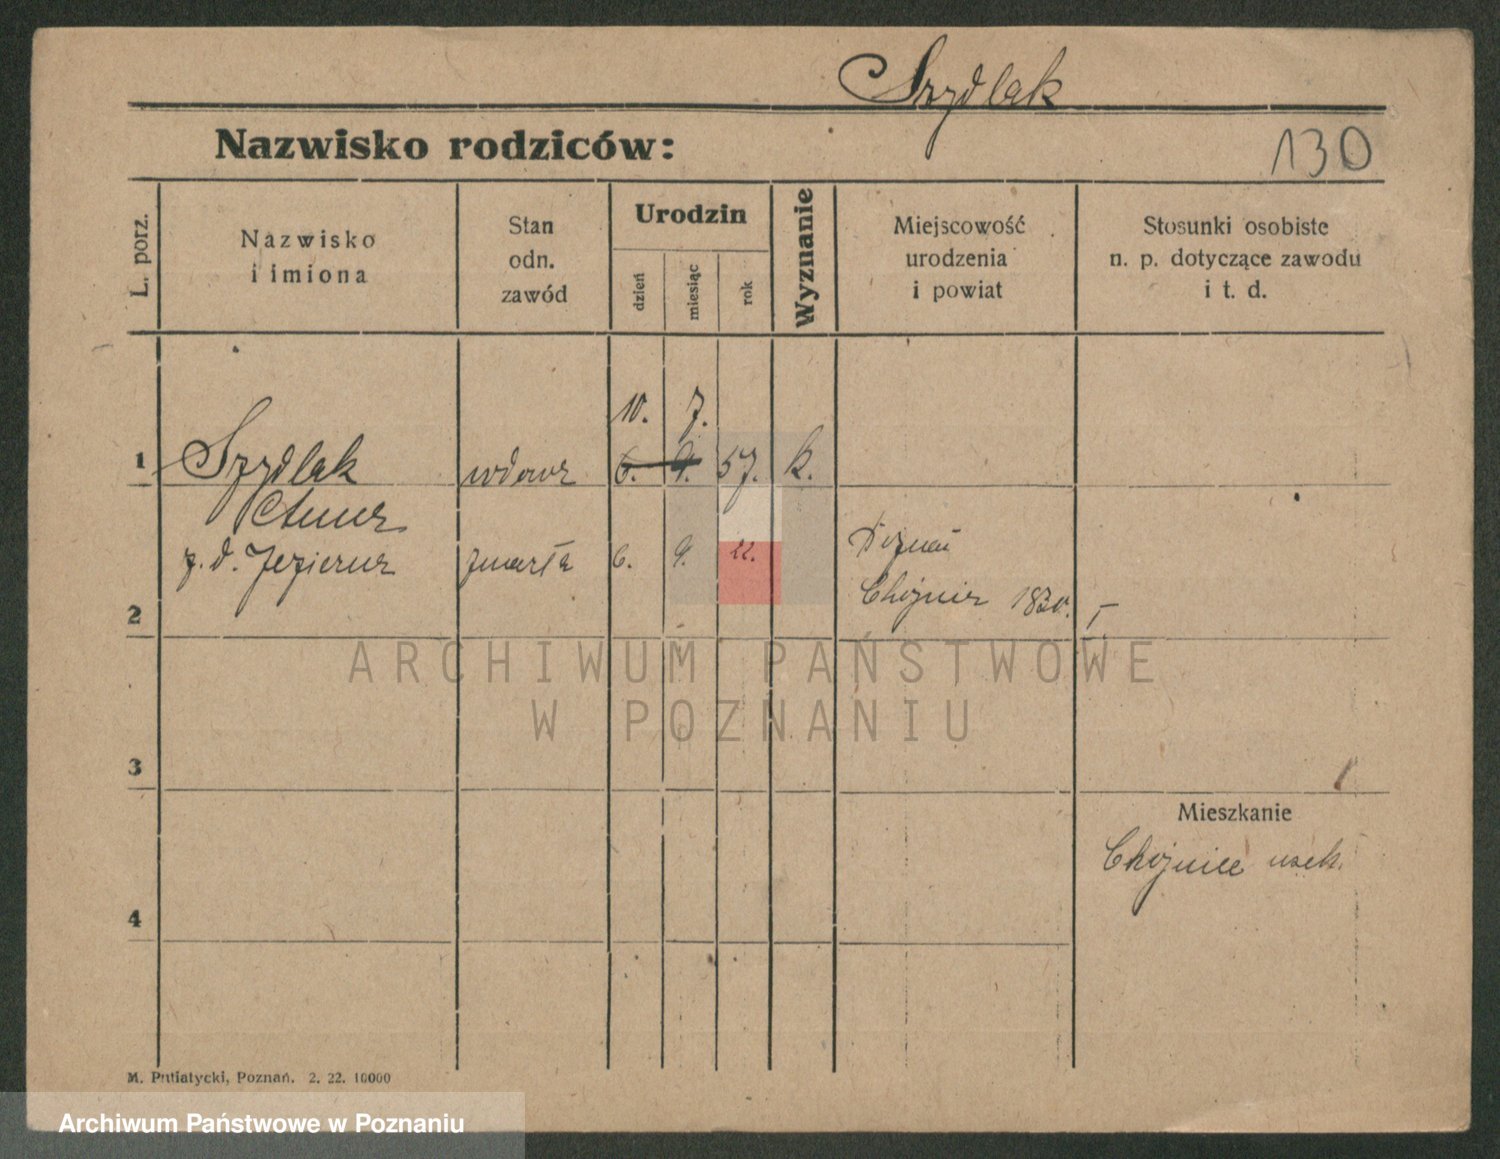 Szydlak
Nazwisko rodziców:
130
L. porz.
Nazwisko
i imiona
Stan
odn.
zawód
Urodzin
dzień
miesiąc
rok
Wyznanie
Miejscowość
urodzenia
i powiat
Stosunki osobiste
n. p. dotyczące zawodu
i t. d.
10. 7.
1 Szydlak wdowa 6. 9. 57. k.
Anna
z. d. Jezierna zmarła 6. 9. 22. Poznań
2
ARCHIWUM PAŃSTWOWE
W POZNANIU
3
Mieszkanie
Chojnice
4
M. Putiatycki, Poznań. 2. 22. 10000
Archiwum Państwowe w Poznaniu